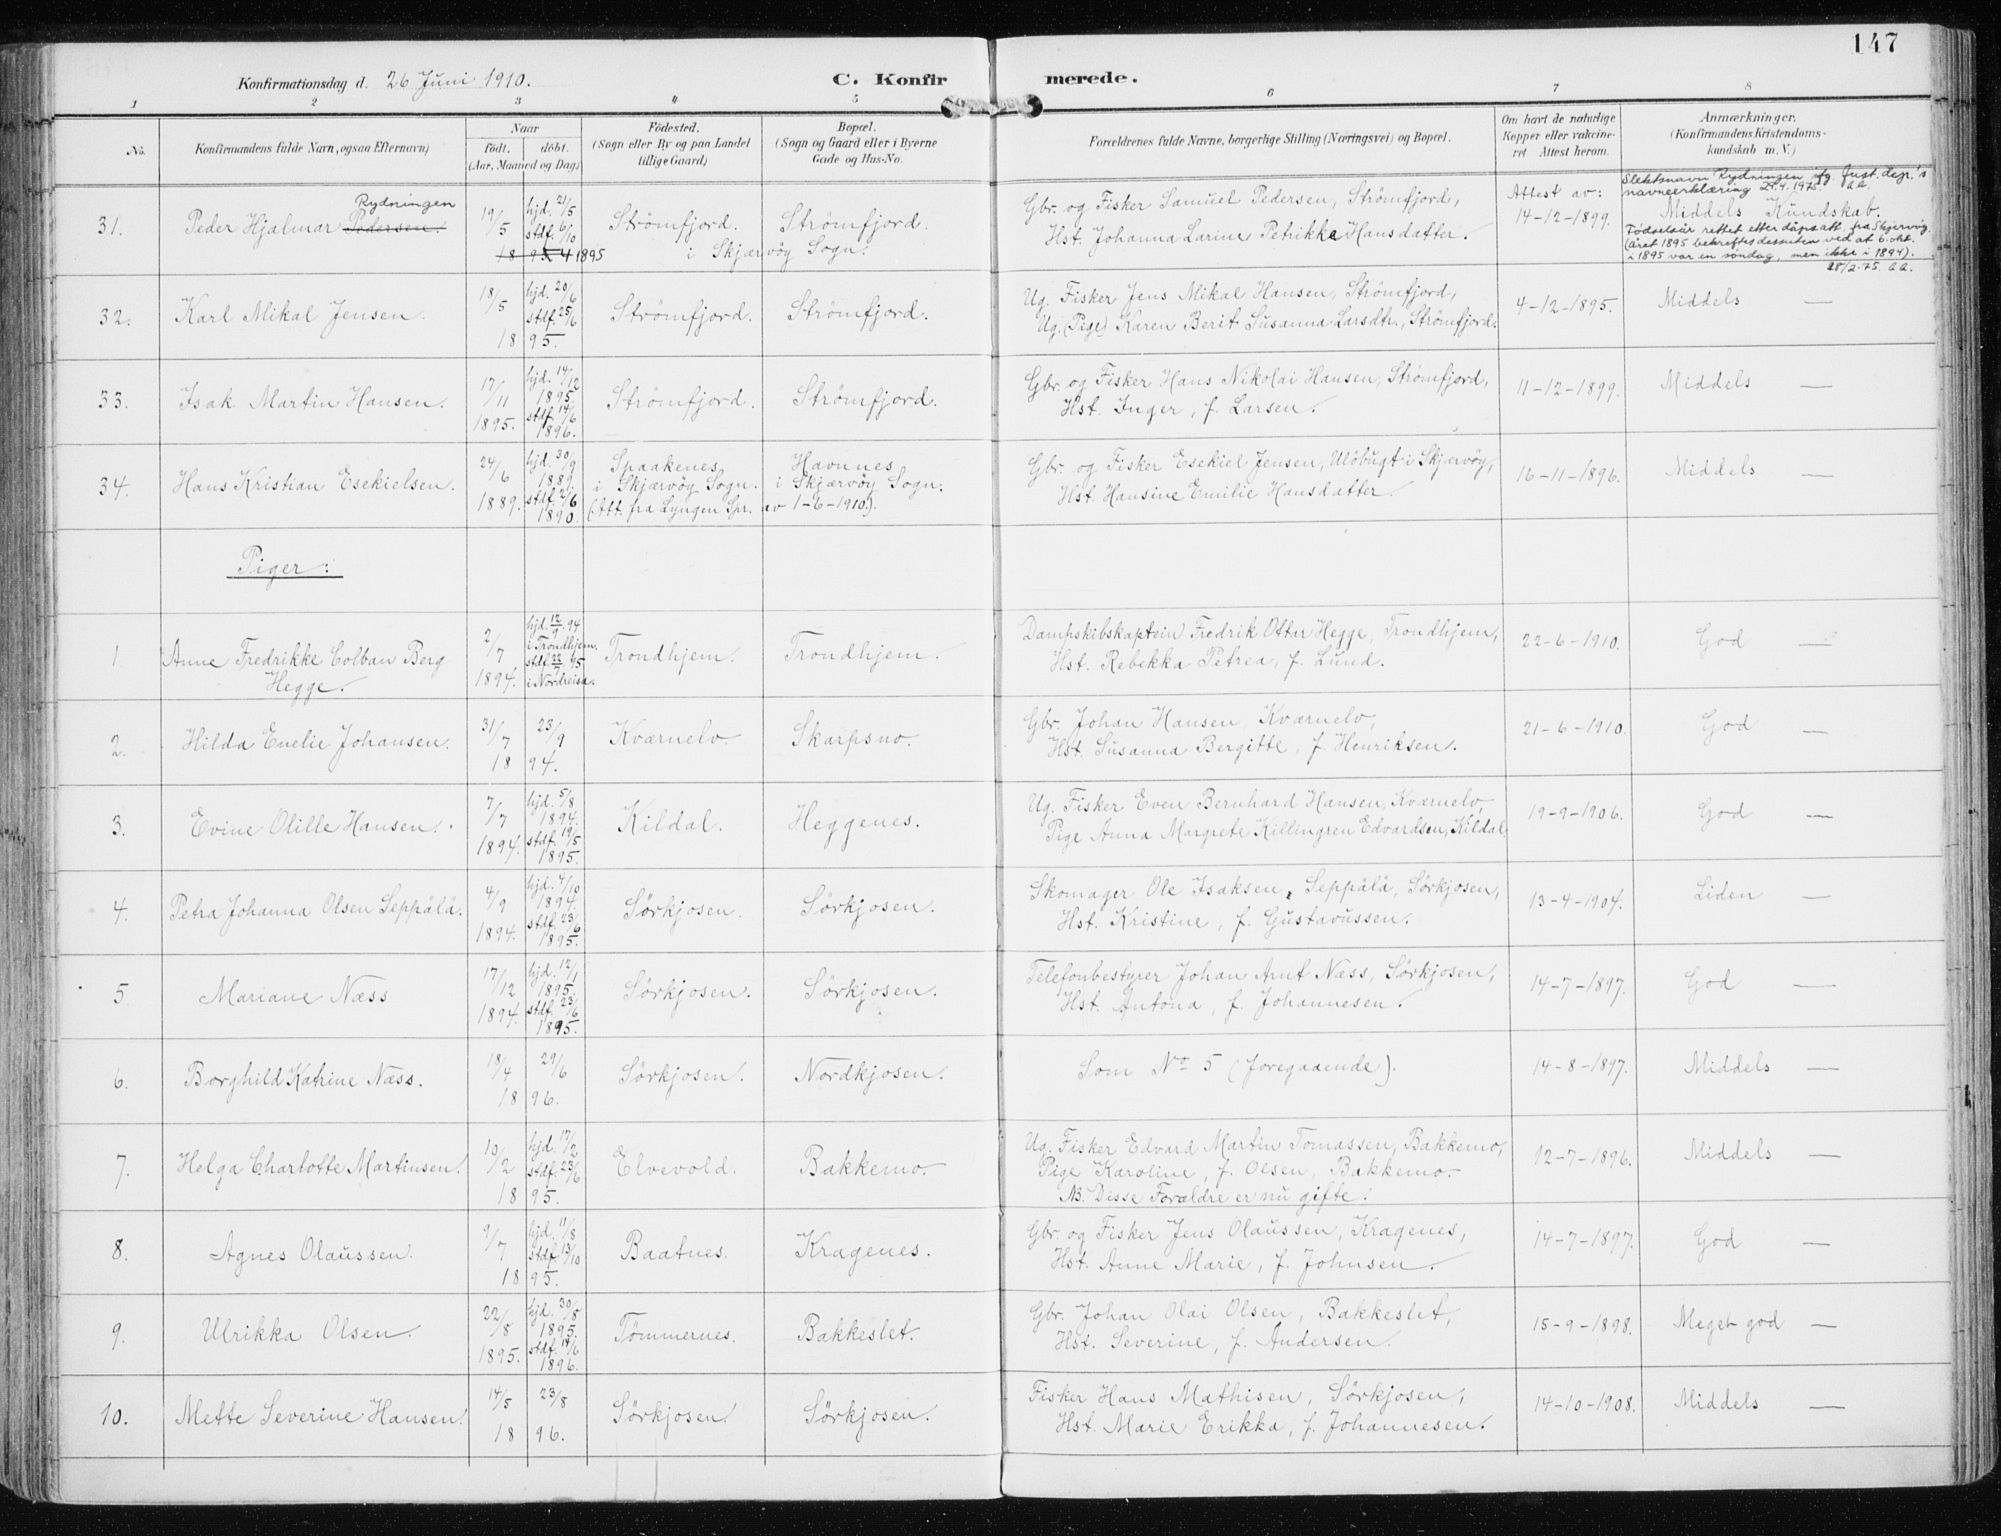 147
Konfirmationsdag d. 26 Juni 1910.
C. Konfirmerede.
1 2 3 4 5 6 7 8
No.
Konfirmandens fulde Navn, ogsaa Efternavn)
Naar
födt. döbt.
(Aar, Maaned og Dag)
Födested.
(Sogn eller By og paa Landet
tillige Gaard)
Bopæl.
(Sogn og Gaard eller i Byerne
Gade og Hus-No.
Forældrenes fulde Navne, borgerlige Stilling (Næringsvei) og Bopæl.
Om havt de naturlige
Kopper eller vakcine-
ret Attest herom.
Anmærkninger.
(Konfirmandens Kristendoms-
kundskab m. V.)
31. Peder Hjalmar Pedersen. Rydningen
19/5 1895
hjd. 21/5
stdf. 6/10
18 94
Strömfjord. Strömfjord.
i Skjærvöy Sogn.
Gbr. og Fisker Samuel Pedersen, Strömfjord,
Hst. Johanna Larine Petrikke Hansdatter.
Attest av:
14-12-1899.
Slektsnavn Rydningen ifg Just. dep.'s
navneerklæring 29.4.1975
Middels Kundskab.
Födselsår rettet etter dåpsatt. fra Skjervöy.
(året 1895 bekreftes dessuten ved at 6. okt.
i 1895 var en søndag, men ikke i 1894).
28/2-75.
32. Karl Mikal Jensen.
18/5
hjd. 20/6
stdf. 25/6
18 95.
Strömfjord. Strömfjord.
Ug. Fisker Jens Mikal Hansen, Strömfjord,
Ug. (Pige) Karen Berit Susanna Larsdtr., Strömfjord.
4-12-1895. Middels —
33. Isak Martin Hansen.
17/11
1895.
hjd. 14/12
1895.
stdf. 14/6
1896.
Strömfjord. Strömfjord.
Gbr. og Fisker Hans Nikolai Hansen, Strömfjord,
Hst. Inger, f. Larsen.
11-12-1899. Middels —
34. Hans Kristian Esekielsen.
24/6
1889.
hjd. 30/9
1889.
stdf. 2/6
1890.
Spaakenes Havnnes
i Skjærvöy Sogn. i Skjærvöy Sogn.
(Att. fra Lyngen Spr. av 1-6-1910.).
Gbr. og Fisker Esekiel Jensen, Ulöbugt i Skjærvöy,
Hst. Hansine Emilie Hansdatter.
16-11-1896. Middels —
Piger:
1. Anne Fredrikke Colban Berg
Hegge.
2/7
1894.
hjd. 12/9. 94
i Trondhjem.
stdf 22/7 95
i Nordreisa.
Trondhjem. Trondhjem.
Dampskibskaptein Fredrik Ottar Hegge, Trondhjem,
Hst. Rebekka Petrea, f. Lund.
22-6-1910. God —
2. Hilda Enelie Johansen.
31/7 23/9
18 94.
Kværnelv. Skarpsno.
Gbr. Johan Hansen, Kværnelv,
Hst. Susanna Bergitte, f. Henriksen.
21-6-1910. God —
3. Evine Olille Hansen.
7/7
1894.
hjd. 5/8
1894.
stdf. 19/5
1895.
Kildal. Heggenes.
Ug. Fisker Even Bernhard Hansen, Kværnelv,
Pige Anna Margrete Killingren Edvardsen, Kildal
19-9-1906. God —
4. Petra Johanna Olsen Seppälä.
4/9
1894.
hjd. 4/10
1894.
stdf. 23/6
1895.
Sörkjosen. Sörkjosen.
Skomager Ole Isaksen Seppälä, Sörkjosen,
Hst. Kristine, f. Gustavussen.
13-4-1904. Liden —
5. Mariane Næss
17/12
1894.
hjd. 12/1
1895.
stdf. 23/6
1895.
Sörkjosen. Sörkjosen.
Telefonbestyrer Johan Arnt Næss, Sörkjosen,
Hst. Antona, f. Johannesen.
14-7-1897. God —
6. Borghild Katrine Næss.
18/4 29/6
18 96.
Sörkjosen. Nordkjosen.
Som No 5 (foregaaende).
14-8-1897. Middels —
7. Helga Charlotte Martinsen.
10/2
hjd. 17/2
stdf. 23/6
18 95.
Elvevold. Bakkemo.
Ug. Fisker Edvard Martin Tomassen, Bakkemo,
Pige Karoline, f. Olsen, Bakkemo.
NB. Disse Forældre er nu gifte!
12-7-1896. Middels —
8. Agnes Olaussen.
9/7
hjd. 11/8
stdf. 13/10
18 95.
Baatnes. Kragenes.
Gbr. og Fisker Jens Olaussen, Kragenes,
Hst. Anne Marie, f. Johnsen.
14-7-1897. God —
9. Ulrikka Olsen.
22/8
1895.
hjd. 30/8
1895.
stdf. 14/6
1896.
Tömmernes. Bakkeslet.
Gbr. Johan Olai Olsen, Bakkeslet,
Hst. Severine, f. Andersen.
15-9-1898. Meget god —
10. Mette Severine Hansen.
14/5 23/8
18 96.
Sörkjosen Sörkjosen.
Fisker Hans Mathisen, Sörkjosen,
Hst. Marie Erikka, f. Johannesen.
14-10-1908. Middels —